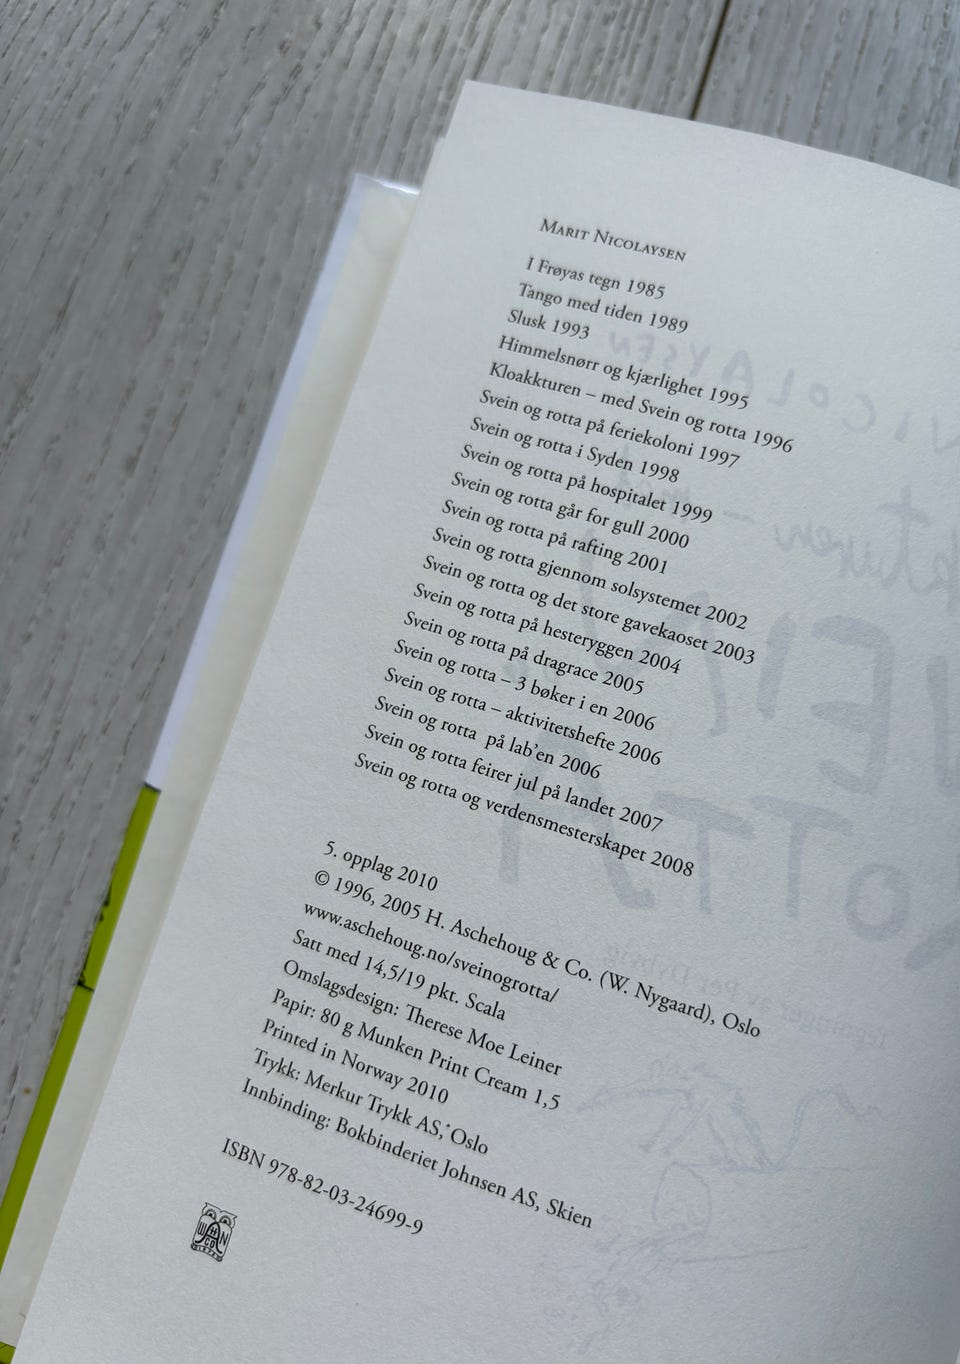 MARIT NICOLAYSEN
I Frøyas tegn 1985
Tango med tiden 1989
Slusk 1993
Himmelsnørr og kjærlighet 1995
Kloakkturen – med Svein og rotta 1996
Svein og rotta på feriekoloni 1997
Svein og rotta i Syden 1998
Svein og rotta på hospitalet 1999
Svein og rotta går for gull 2000
Svein og rotta på rafting 2001
Svein og rotta gjennom solsystemet 2002
Svein og rotta og det store gavekaoset 2003
Svein og rotta på hesteryggen 2004
Svein og rotta på dragrace 2005
Svein og rotta – 3 bøker i en 2006
Svein og rotta – aktivitetshefte 2006
Svein og rotta på lab'en 2006
Svein og rotta feirer jul på landet 2007
Svein og rotta og verdensmesterskapet 2008
5. opplag 2010
© 1996, 2005 H. Aschehoug & Co. (W. Nygaard), Oslo
www.aschehoug.no/sveinogrotta/
Satt med 14,5/19 pkt. Scala
Omslagsdesign: Therese Moe Leiner
Papir: 80 g Munken Print Cream 1,5
Printed in Norway 2010
Trykk: Merkur Trykk AS, Oslo
Innbinding: Bokbinderiet Johnsen AS, Skien
ISBN 978-82-03-24699-9